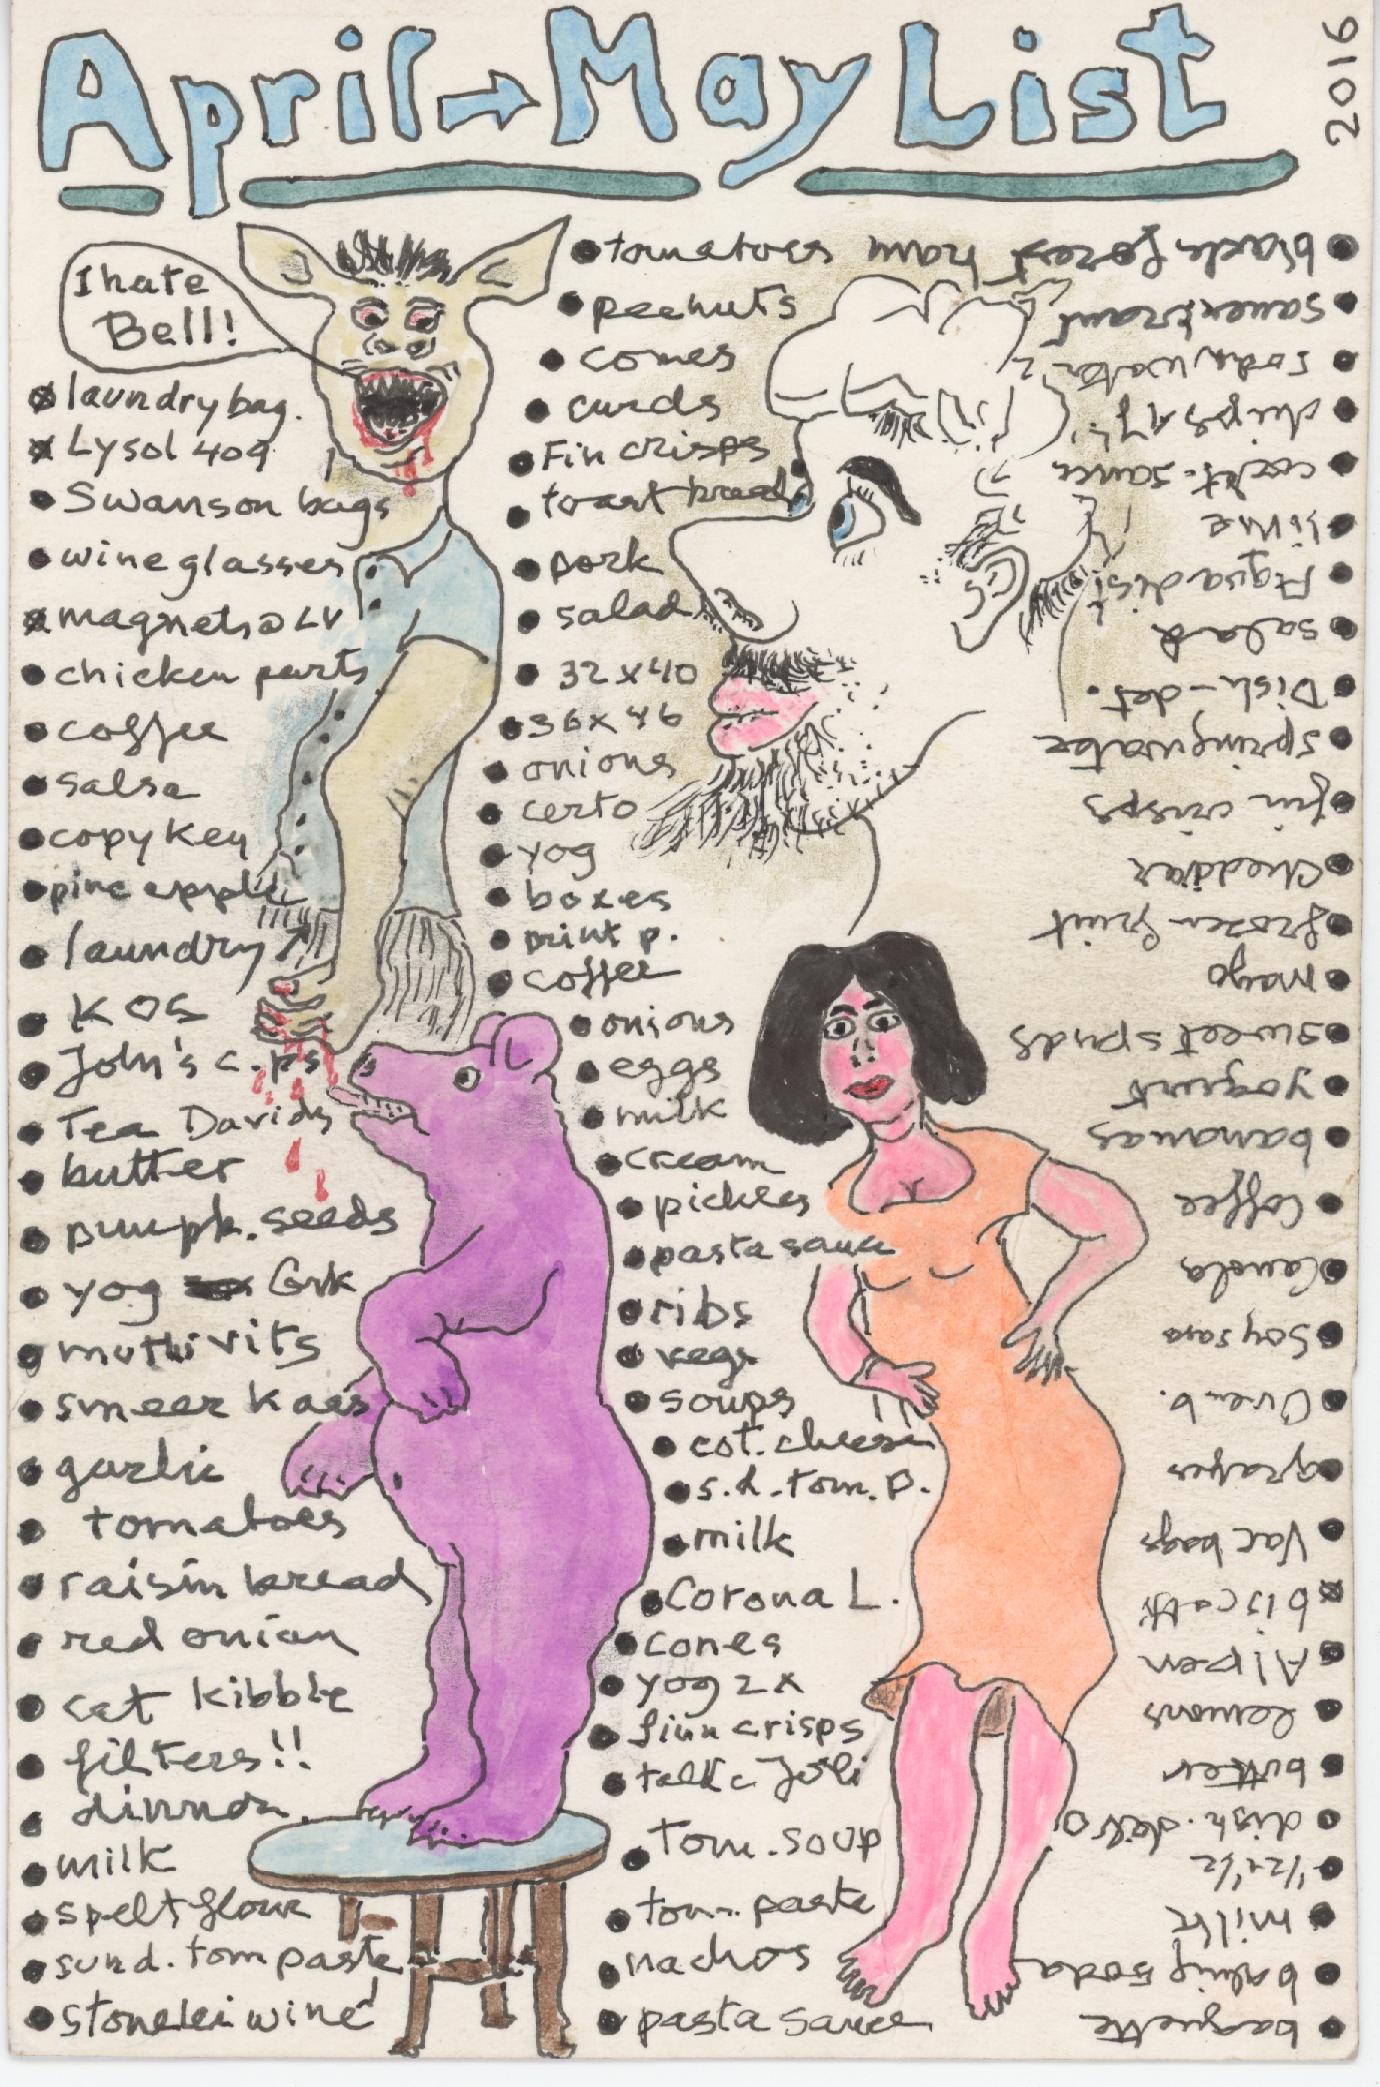 April→May List
2016
I hate
Bell!
laundry bag.
Lysol 409
Swanson bags
wine glasses
magnets @ LV
chicken parts
coffee
salsa
copy key
pine apple
laundry
K OS
John's c. ps
Tea Davids
butter
pumpk. seeds
yog Grk
multi vits
smeer kaas
garlic
tomatoes
raisin bread
red onion
cat kibble
filters!!
dinner
milk
spelt flour
sund. tom paste
wine
tomatoes
peehuts
comes
curds
Fin crisps
toast bread
pork
salad
32 x 40
36 x 46
onions
certo
yog
boxes
print p.
coffee
onions
eggs
milk
cream
pickles
pasta sauce
ribs
vegs
soups
cot. cheese
s.d. tom. p.
milk
Corona L.
cones
yog 2x
finn crisps
talk c
Tom. soup
tom. paste
nachos
pasta sauce
baguette
baking soda
milk
dish. det
butter
lemons
Alpen
Vac bags
grapes
Oven b.
Soy
Canola
Coffee
bananas
yogurt
sweet spuds
mayo
frozen fruit
cheddar
fin crisps
spring water
Dish-det.
salad
Aqua dist
lime
cockt. sauce
chips
soda water 2
sauerkraut
black forest ham